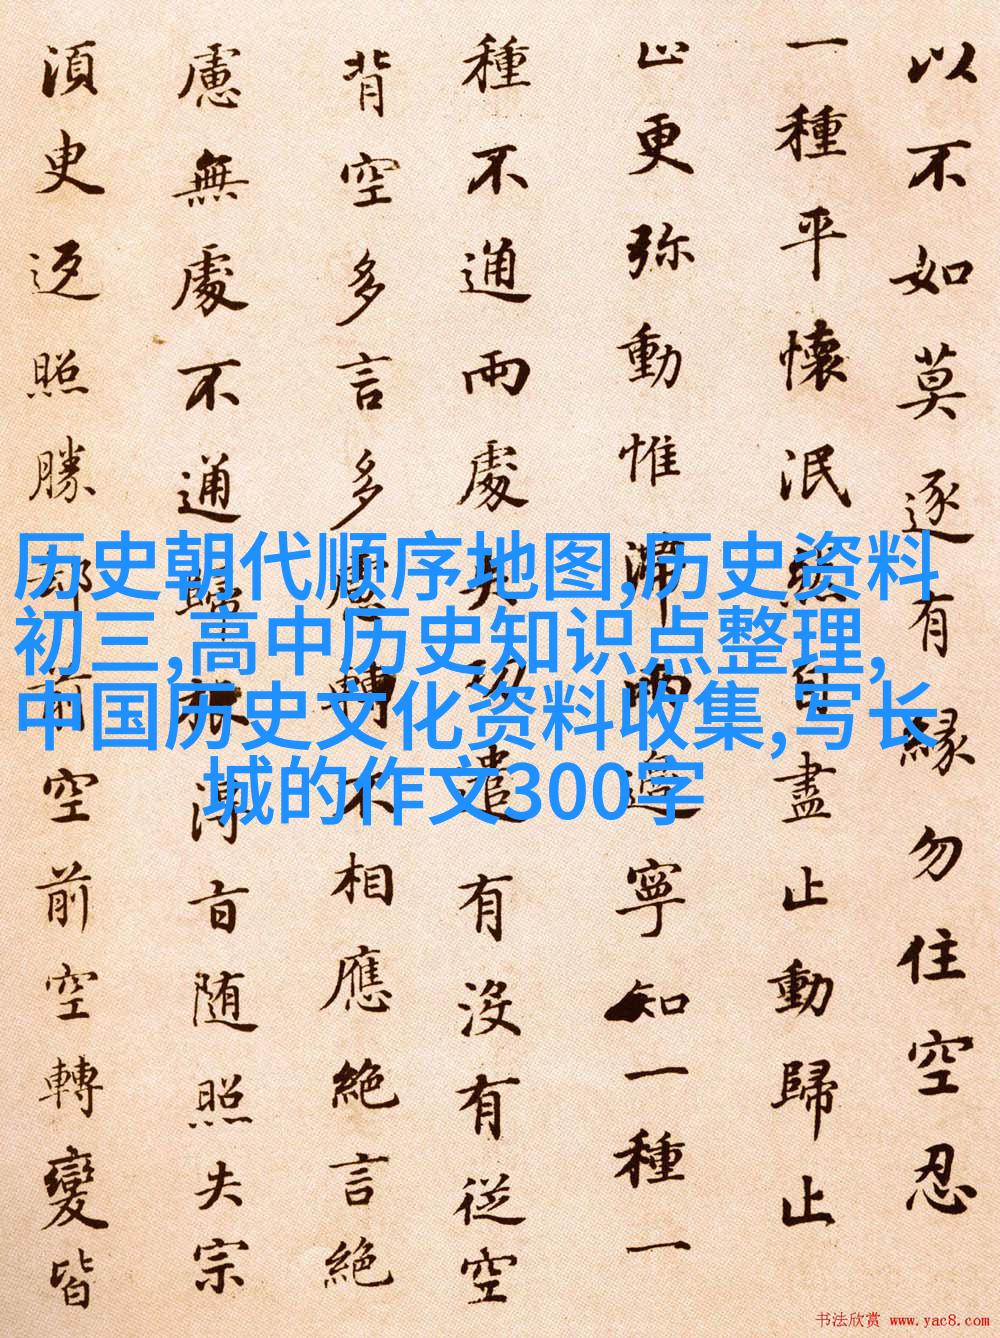 以不如莫逐有緣勿住空忍
一種平懷泯然自盡止動歸止
止更弥動惟滯兩邊寧知一種一
種不通兩處失功遣有沒有從空
背空多言多慮轉不相應絕言絕
慮無處不通歸根得旨随照失宗
須臾返照勝却前空前空轉變皆
历史朝代顺序地图,历史资料
初三,高中历史知识点整理,
中国历史文化资料收集,写长
城的作文300字
书法欣赏 www.yac8.com